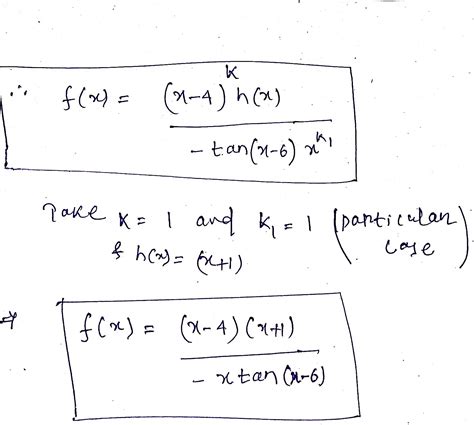 ∴ f(x) = (x-4)^k h(x) / - tan(x-6) x^k₁
Take k = 1 and k₁ = 1 (particular case)
& h(x) = (x+1)
⇒ f(x) = (x-4)(x+1) / - x tan(x-6)